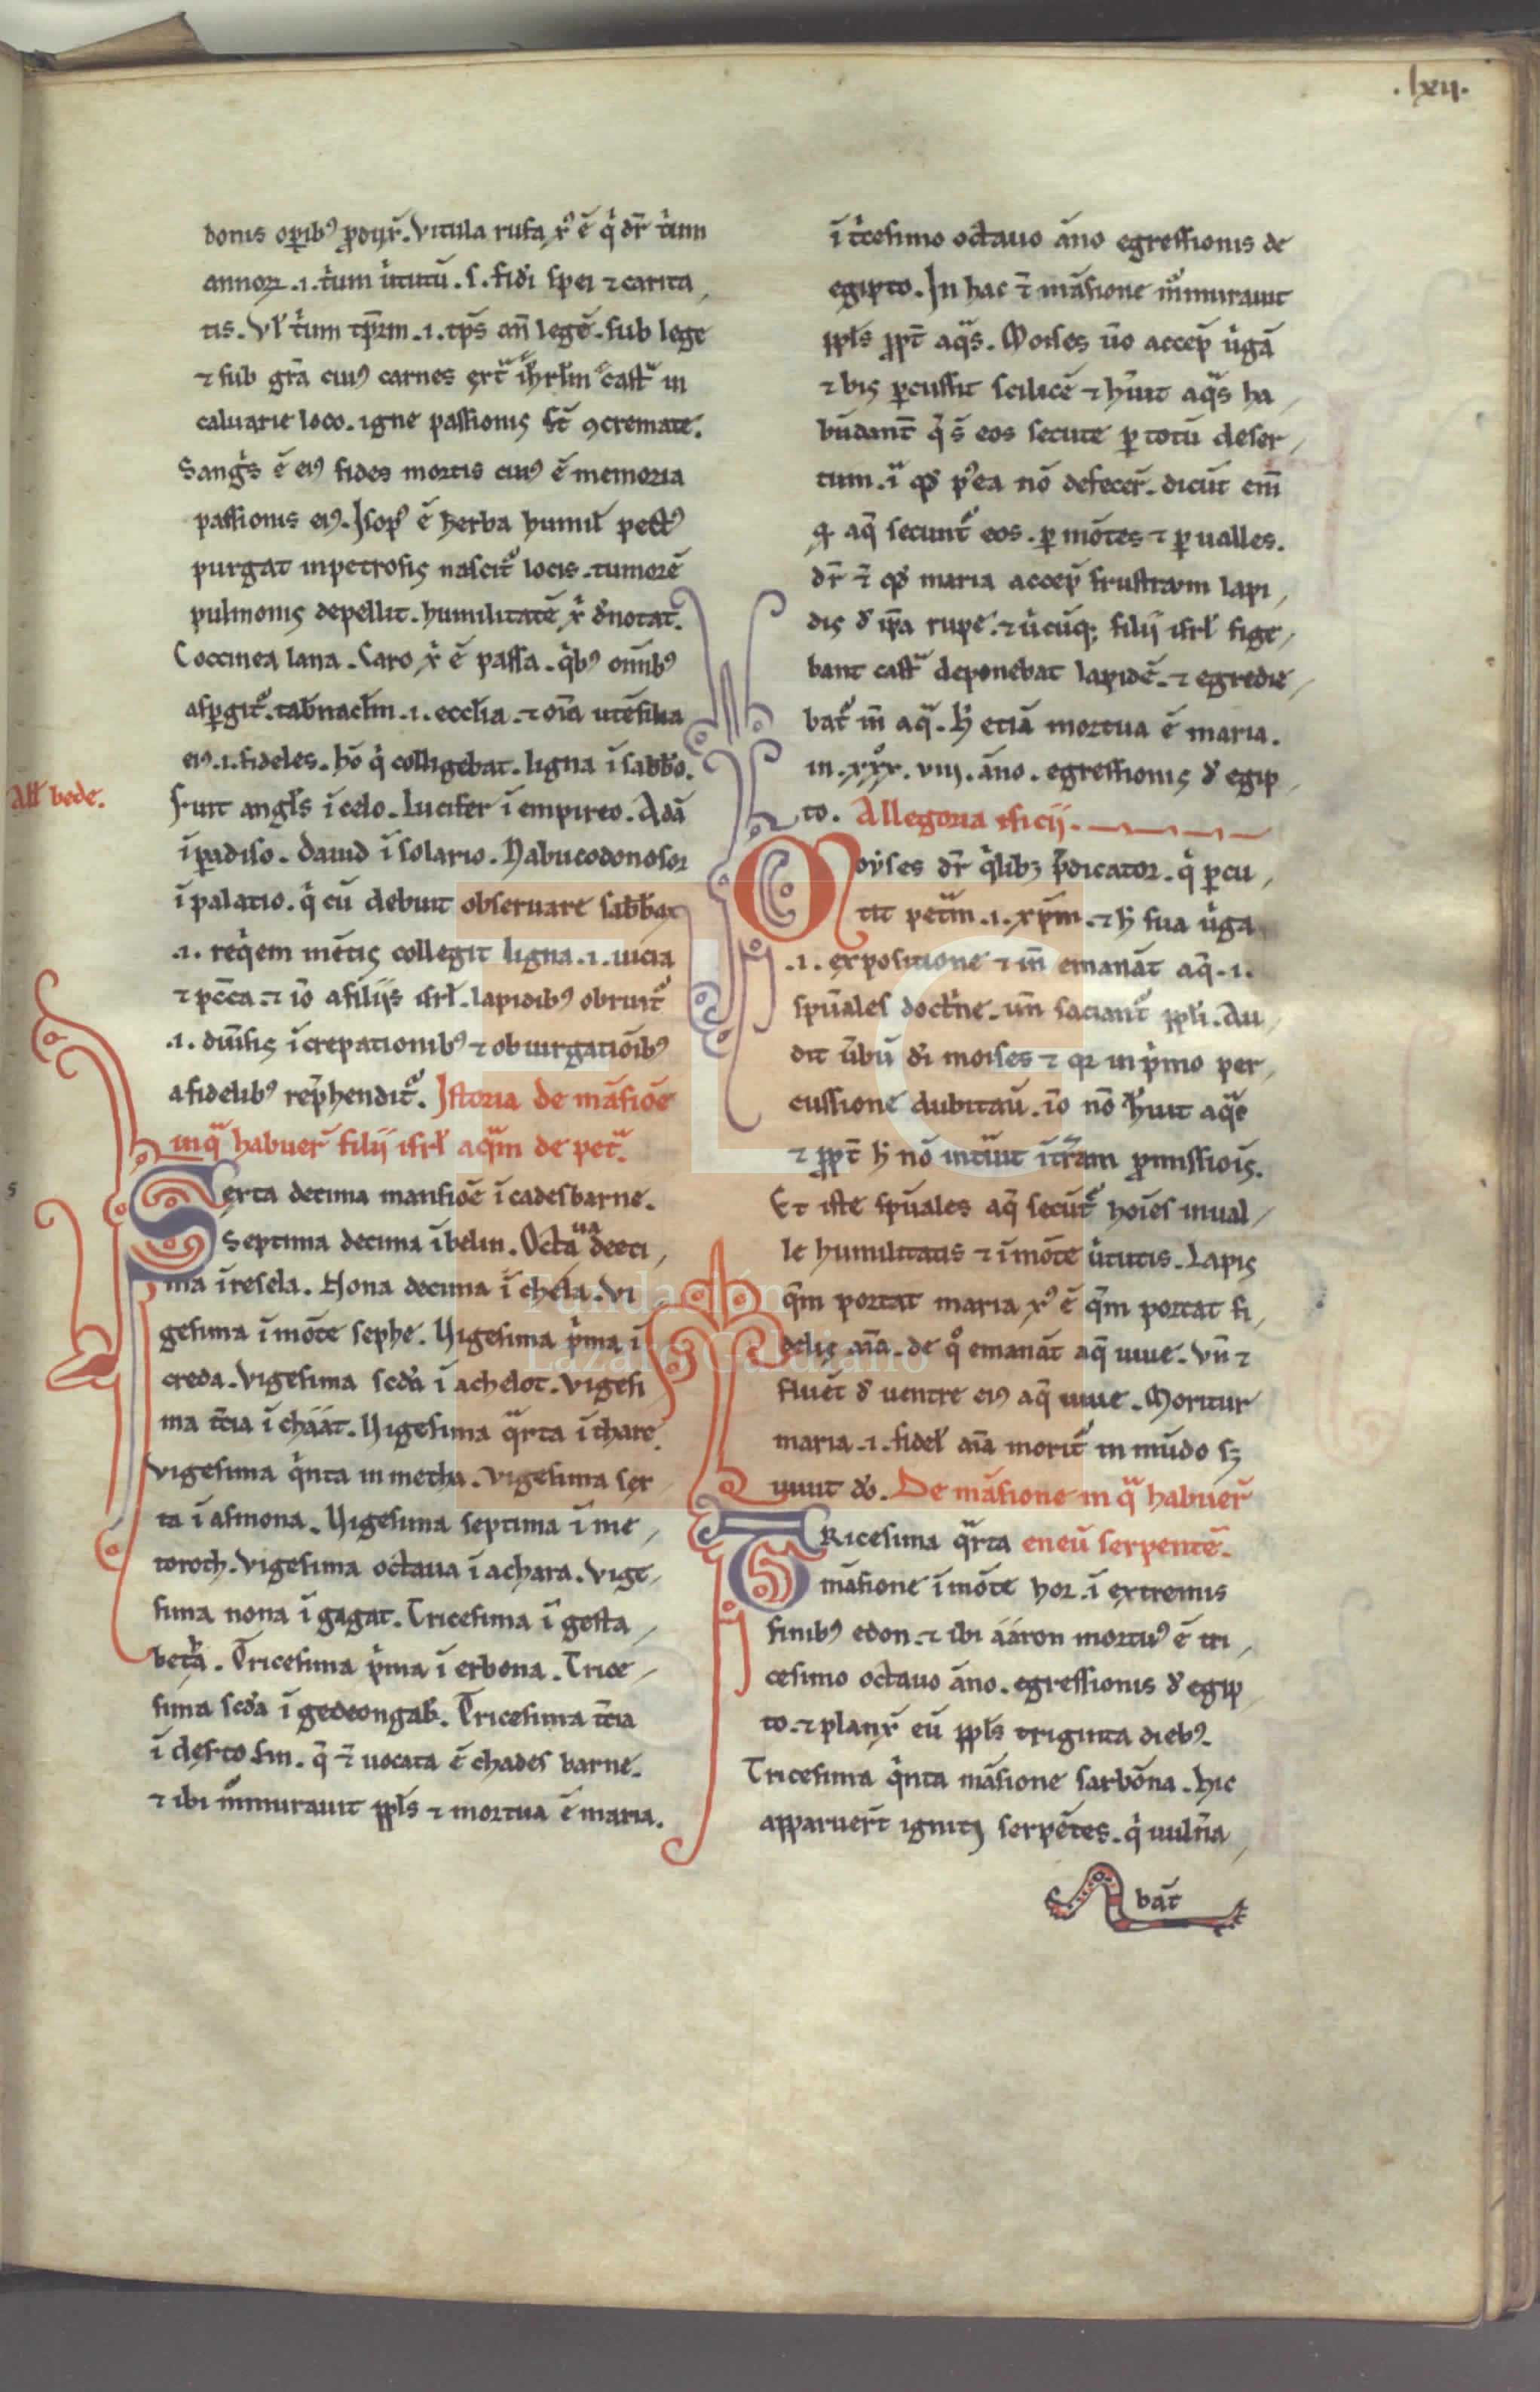 .lxii.
donis oꝑibꝰ ꝓdijt̃. Vitula rufa xp̃ꝰ ẽ q̇ dr̃ t̾ium
annoꝝ .i. t̾um ũtutũ .s. fidi spei ⁊ carita
tis. Vl̃ t̾ium tp̃rm .i. tp̃s añ legẽ. sub lege
⁊ sub gr̃a ciuꝰ carnes ext̃ ih̃rl̃m cast̃ in
caluarie loco. igne passionis st̃ ꝯcremate.
Sang̾s ẽ eiꝰ fides mortis eiuꝰ ẽ memoria
passionis eiꝰ. Isopꝰ ẽ herba humil̃ pectꝰ
purgat in petrosis nascit̃ locis. tumorẽ
pulmonis depellit. humilitatẽ xp̃i dñotat.
Coccinea lana. Caro xp̃i ẽ passa. q̇bꝰ om̃ibꝰ
aspgit̃. tab̃nacl̃m .i. eccl̃ia. ⁊ oĩa utẽsilia
eiꝰ .i. fideles. hõ q̇ colligebat. ligna ĩ sabb̃o.
All̃ bede.
fuit angl̃s ĩ celo. Lucifer ĩ empireo. Adã
ĩ ꝑadiso. Dauid ĩ solario. Nabucodonosor
ĩ palatio. q̇ cũ debuit obseruare sabb̃ax
.i. req̇em mẽtis collegit ligna .i. uicia
⁊ pc̃ca. ⁊ iõ a filijs isrl̃. lapidibꝰ obruit̃
.i. diũsis ĩcrepationibꝰ ⁊ obiurgatiõibꝰ
a fidelibꝰ rep̃hendit̃. Istoria de mãsiõe
in q̃ habuer̃ filij isrl̃ aq̃m de pet̃.
Serta decima mansiõe ĩ cadesbarne.
Septima decima ĩ belin. Octaua deci
ma ĩ resela. Nona decima ĩ chela. Vi
gesima ĩ mõte sephe. Uigesima p̾ma ĩ
creda. Vigesima scd̃a ĩ achelot. Vigesi
ma t̃cia ĩ chäät. Uigesima q̃rta ĩ thare
Vigesima q̇nta in metha. Vigesima sex
ta ĩ asmona. Uigesima septima ĩ me
toroth. Vigesima octaua ĩ achara. Vige
sima nona ĩ gagat. Tricesima ĩ gesta
bet̾a. Tricesima p̾ma ĩ erbona. Trice
sima scd̃a ĩ gedeongab. Tricesima t̃cia
ĩ des̾to sin. q̃ ⁊̃ uocata ẽ chades barne.
⁊ ibi m̃murauit ppl̃s ⁊ mortua ẽ maria.
ĩ t̾cesimo octauo ãno egressionis de
egipto. In hac ⁊̃ mãsione m̃murauit
ppl̃s ppt̃ aq̃s. Moises ũo accep̃ ũgã
⁊ bis ꝑcussit scilicẽ ⁊ hũit aq̃s ha
bũdant̃ q̃ s̃ eos secute ꝑ totũ deser
tum. ĩ qd̾ p̾ea nõ defecer̃. dicũt em̃
qͥ aq̃ secunt̃ eos. ꝑ mõtes ⁊ ꝑ ualles.
dr̃ ⁊̃ qd̾ maria accep̃ frustrum lapi
dis d̾ ip̃a rupe. ⁊ ũcũq; filij isrl̃ fige
bant cast̃ deponebat lapidẽ. ⁊ egredie
bat̃ iñ aq̃. H̾ etiã mortua ẽ maria.
in .xxx̊. viij. ãno. egressionis d̾ egip
to. Allegoria ificij.
Moyses dr̃ q̇lib; p̃dicator. q̇ ꝑcu
tit pet̃m .i. xp̃m. ⁊ h̾ sua ũga
.i. expositione ⁊ iñ emanãt aq̃ .i.
spũales doct̾ne. uñ saciant̃ ppl̃i. Au
dit ũbũ d̾i moises ⁊ qꝛ in p̾mo per
cussione dubitaũ. iõ nõ h̾uit aq̃s
⁊ ppt̃ h̾ nõ int̃uit ĩ t̃ram ꝓmissiõis.
Et iste spũales aq̃ secũt̃ hoĩes in ual
le humilitatis ⁊ ĩ mõte ũtutis. Lapis
q̃m portat maria xp̃ꝰ ẽ q̃m portat fi
delis aĩa. de q̊ emanãt aq̃ uiue. Vñ ⁊
fluẽt d̾ uentre eiꝰ aq̃ uiue. Moritur
maria .i. fidel̃ aĩa morit̃ in mũdo s;
uiuit d̾o. De mãsione in q̃ habuer̃
Tricesima q̃rta eneũ serpentẽ.
mãsione ĩ mõte hor. ĩ extremis
finibꝰ edon. ⁊ ibi ääron mortuꝰ ẽ tri
cesimo octauo ãno. egressionis d̾ egip
to. ⁊ planx̃ eũ ppl̃s triginta diebꝰ.
Tricesima q̇nta mãsione sarbõna. hic
apparuer̃t ignitj serpẽtes. q̇ uuln̾a
bãt
Fundación
Lázaro Galdiano